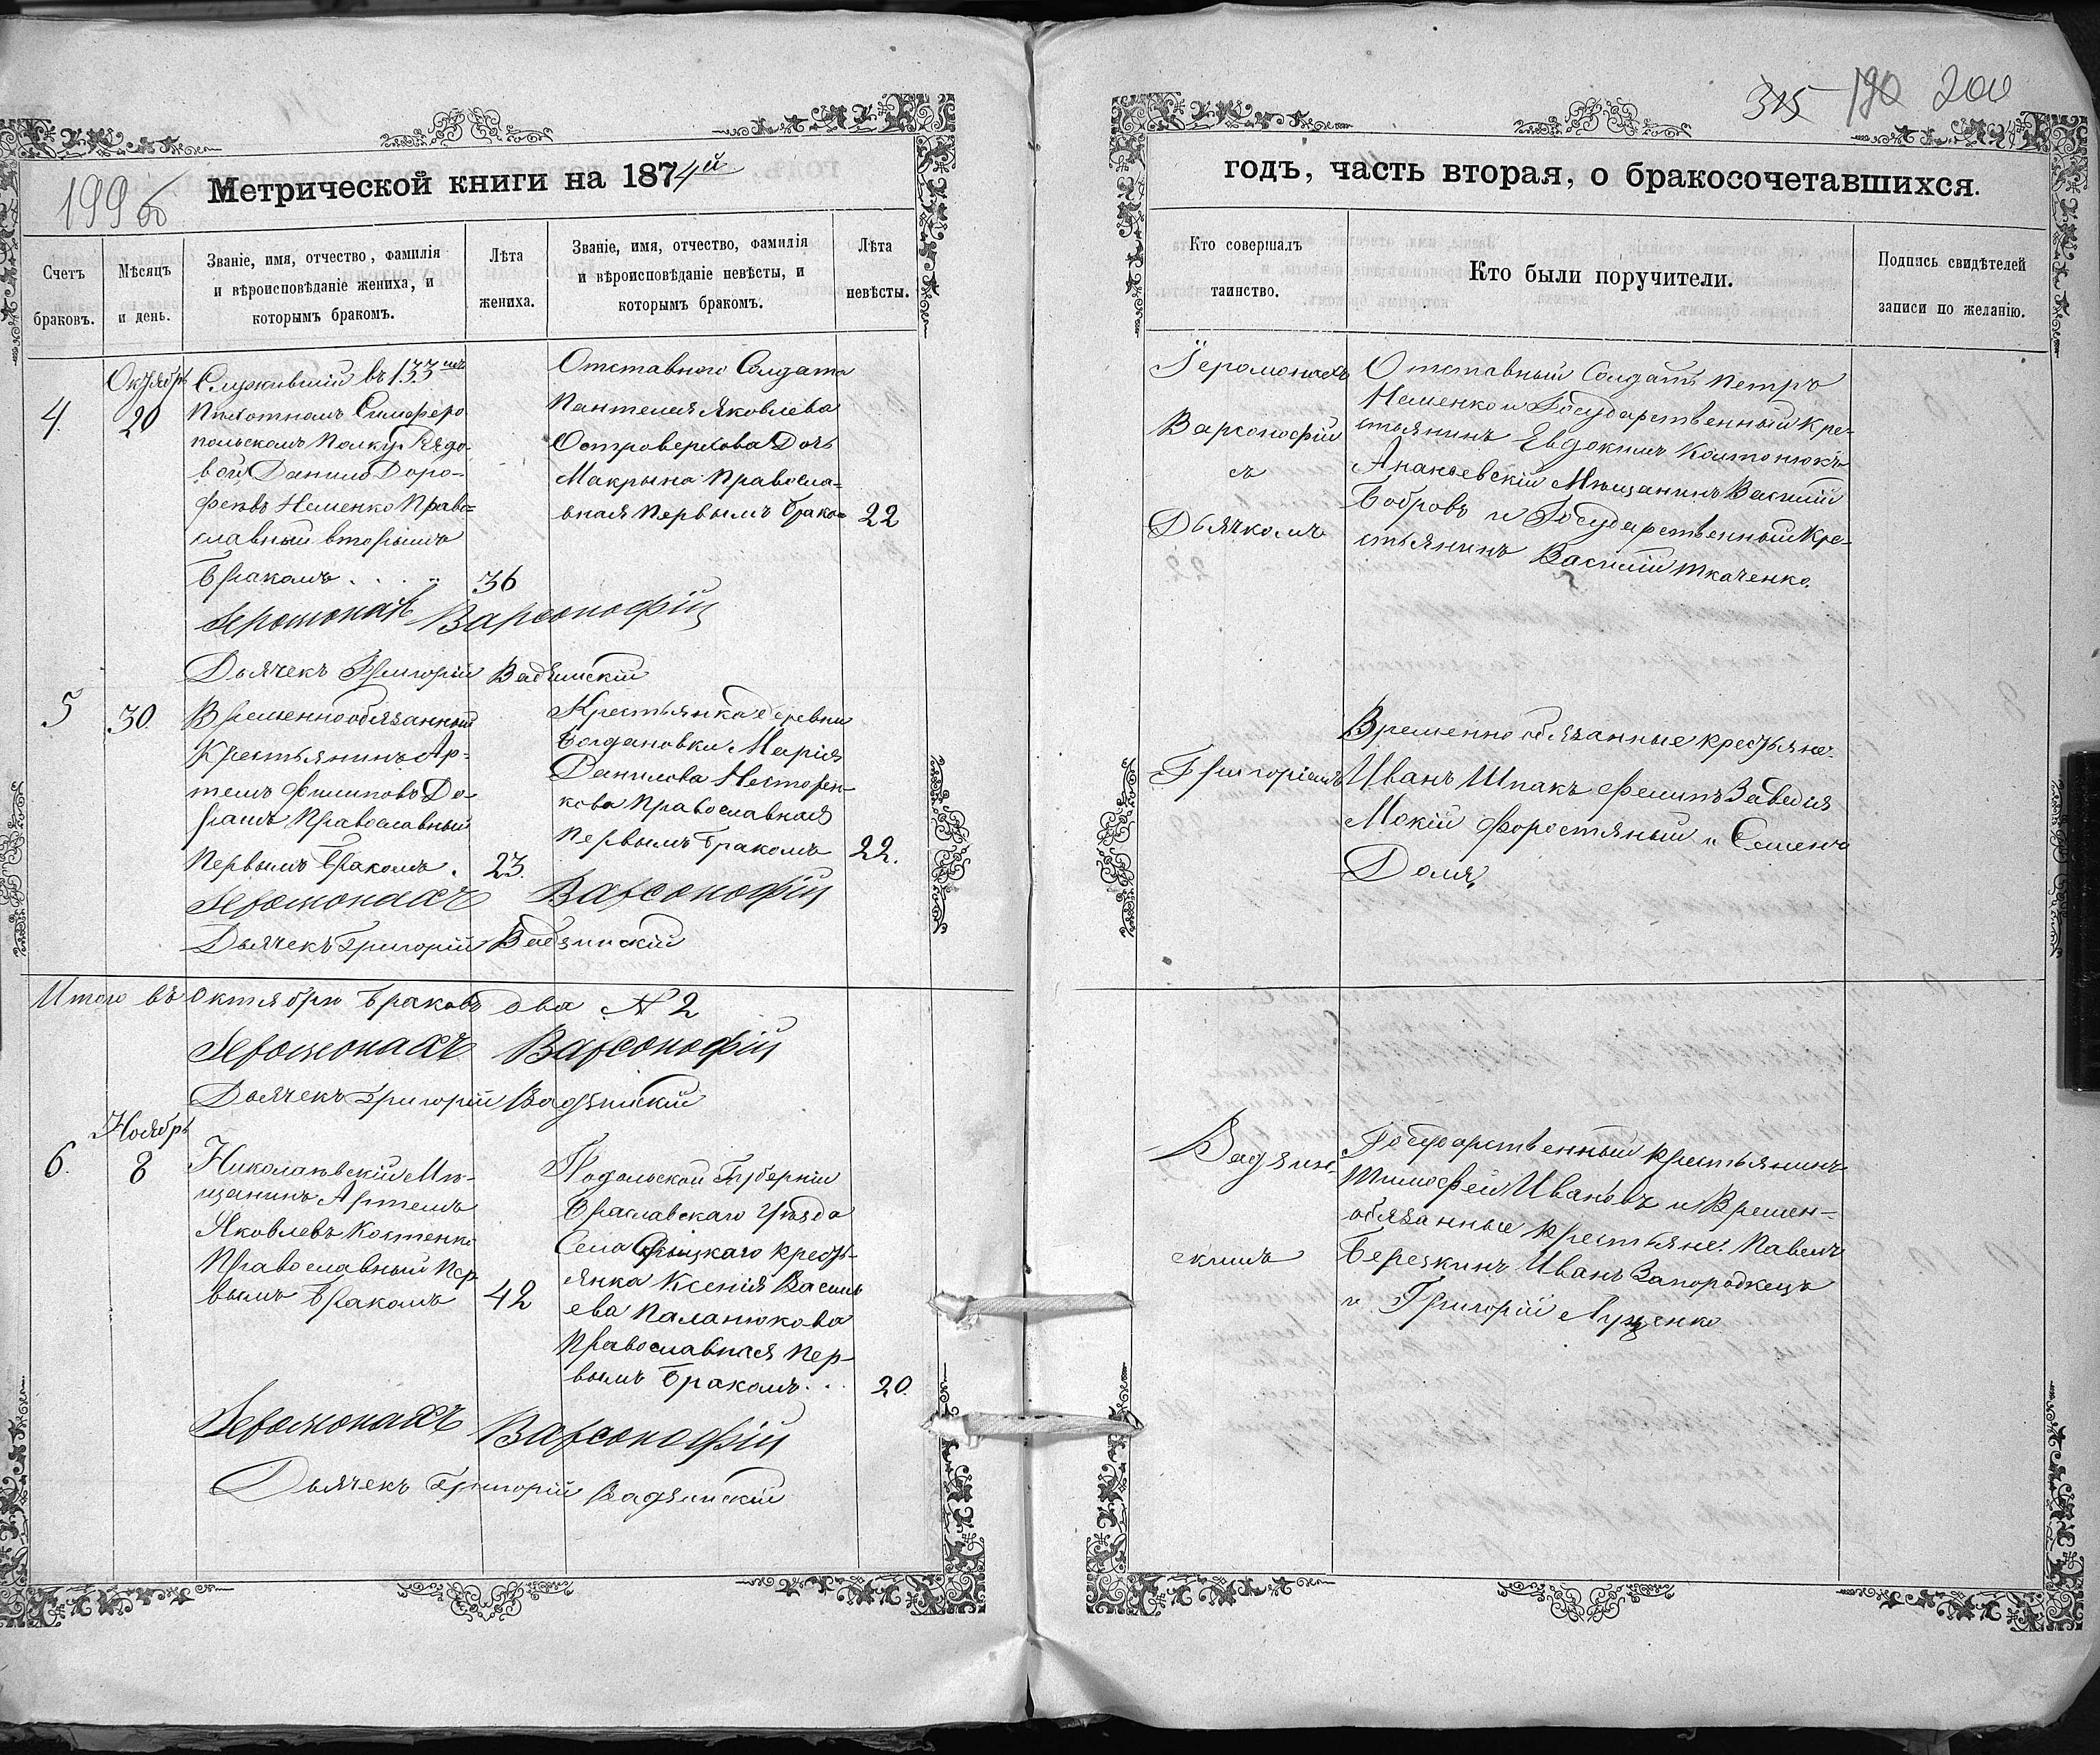 199 об
Метрической книги на 1874й
Счетъ браковъ.
Мѣсяцъ и день.
Званіе, имя, отчество, фамилія
и вѣроисповѣданіе жениха, и
которымъ бракомъ.
Лѣта
жениха.
Званіе, имя, отчество, фамилія
и вѣроисповѣданіе невѣсты, и
которымъ бракомъ.
Лѣта
невѣсты.
4.
Октябрь
20
Служившій въ 133мъ
Пѣхотномъ Симферо
польскомъ Полку Рядо-
вой Данило Доро-
феевъ Неменко Право=
славный вторымъ
Бракомъ . . . .
36
Отставнаго Солдата
Пантелея Яковлева
Островерхова Дочь
Макрына Правосла=
вная Первымъ Брако=
22
Іеромонахъ Варсонофій
Дьячекъ Григорій Вадзинскій
5
30.
Временнообязанный
Крестьянинъ Ар-
темъ Филиповъ До-
рашъ Православный
Первымъ Бракомъ .
23.
Крестьянка деревни
Богдановки Марія
Данилова Несторен-
кова Православная
Первымъ Бракомъ
22.
Іеромонахъ Варсонофій
Дьячекъ Григорій Вадзинскій
Итого въ Октябрѣ Браковъ два № 2
Іеромонахъ Варсонофій
Дьячекъ Григорій Вадзинскій
6.
Ноябрь
8
Николаевскій Мѣ-
щанинъ Артемъ
Яковлевъ Костенко
Православный Пер
вымъ Бракомъ
42
Подольской Губерніи
Брацлавскаго Уѣзда
Села кресть-
янка Ксенія Василь
ева Паланюкова
Православная Пер-
вымъ Бракомъ . . .
20.
Іеромонахъ Варсонофій
Дьячекъ Григорій Вадзинскій
315 190 200
годъ, часть вторая, о бракосочетавшихся.
Кто совершалъ
таинство.
Кто были поручители.
Подпись свидѣтелей
записи по желанію.
Іеромонахъ
Варсонофій
съ
Дьячкомъ
Отставный Солдатъ Петръ
Неменко и Государственный Кре-
стьянинъ Евдокимъ Колтонюкъ
Ананьевскій Мѣщанинъ Василій
Бобровъ и Государственный Кре-
стьянинъ Василій Ткаченко.
Григоріемъ
Временно обязанные Крестьяне.
Иванъ Шпакъ Филипъ
Мокій Форостяный и Семенъ
Доля.
Вадзин-
скимъ
Государственный Крестьянинъ
Тимофей Ивановъ и Времен-
обязанные Крестьяне. Павелъ
Березкинъ Иванъ Запорожецъ
и Григорій Луценко